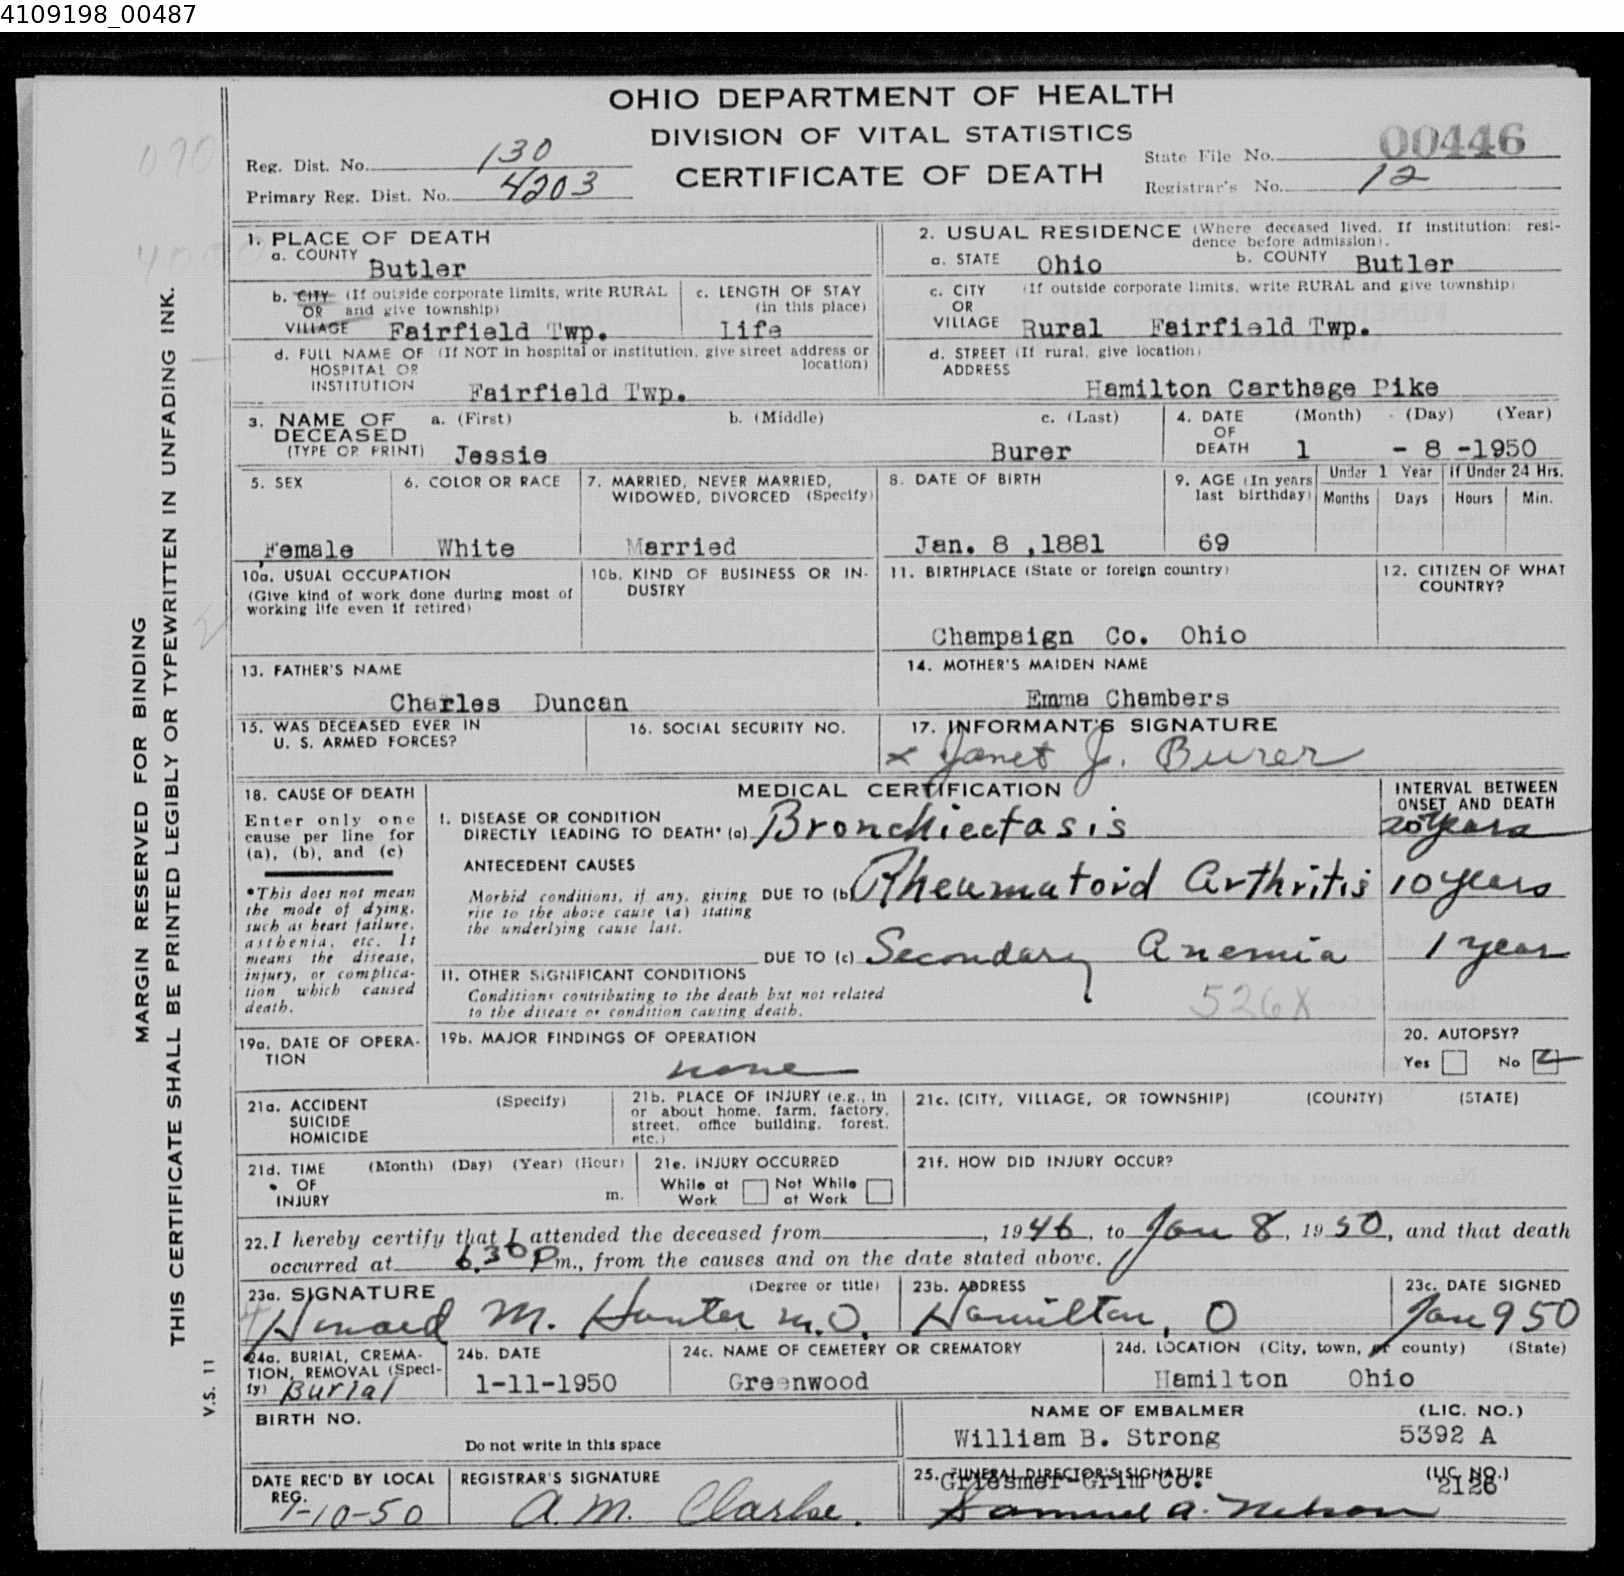 4109198_00487
OHIO DEPARTMENT OF HEALTH
DIVISION OF VITAL STATISTICS
CERTIFICATE OF DEATH
Reg. Dist. No. 130
Primary Reg. Dist. No. 4203
State File No. 00446
Registrar's No. 12
090
MARGIN RESERVED FOR BINDING
THIS CERTIFICATE SHALL BE PRINTED LEGIBLY OR TYPEWRITTEN IN UNFADING INK.
V.S. 11
1. PLACE OF DEATH
a. COUNTY Butler
2. USUAL RESIDENCE (Where deceased lived. If institution: residence before admission).
a. STATE Ohio b. COUNTY Butler
b. CITY (If outside corporate limits, write RURAL
OR and give township)
VILLAGE Fairfield Twp.
c. LENGTH OF STAY
(in this place)
Life
c. CITY (If outside corporate limits, write RURAL and give township)
OR
VILLAGE Rural Fairfield Twp.
d. FULL NAME OF (If NOT in hospital or institution, give street address or
HOSPITAL OR location)
INSTITUTION Fairfield Twp.
d. STREET (If rural, give location)
ADDRESS
Hamilton Carthage Pike
3. NAME OF a. (First) b. (Middle) c. (Last)
DECEASED
(TYPE OR PRINT) Jessie Burer
4. DATE (Month) (Day) (Year)
OF
DEATH 1 - 8 -1950
5. SEX
Female
6. COLOR OR RACE
White
7. MARRIED, NEVER MARRIED,
WIDOWED, DIVORCED (Specify)
Married
8. DATE OF BIRTH
Jan. 8 ,1881
9. AGE (In years
last birthday)
69
Under 1 Year
Months Days
If Under 24 Hrs.
Hours Min.
10a. USUAL OCCUPATION
(Give kind of work done during most of
working life even if retired)
10b. KIND OF BUSINESS OR IN-
DUSTRY
11. BIRTHPLACE (State or foreign country)
Champaign Co. Ohio
12. CITIZEN OF WHAT
COUNTRY?
13. FATHER'S NAME
Charles Duncan
14. MOTHER'S MAIDEN NAME
Emma Chambers
15. WAS DECEASED EVER IN
U. S. ARMED FORCES?
16. SOCIAL SECURITY NO.
17. INFORMANT'S SIGNATURE
x Janet J. Burer
18. CAUSE OF DEATH
Enter only one
cause per line for
(a), (b), and (c)
*This does not mean
the mode of dying,
such as heart failure,
asthenia, etc. It
means the disease,
injury, or complica-
tion which caused
death.
MEDICAL CERTIFICATION
INTERVAL BETWEEN
ONSET AND DEATH
I. DISEASE OR CONDITION
DIRECTLY LEADING TO DEATH* (a) Bronchiectasis 20 years
ANTECEDENT CAUSES
Morbid conditions, if any, giving
rise to the above cause (a) stating
the underlying cause last.
DUE TO (b) Rheumatoid Arthritis 10 years
DUE TO (c) Secondary Anemia 1 year
II. OTHER SIGNIFICANT CONDITIONS
Conditions contributing to the death but not related
to the disease or condition causing death.
526X
19a. DATE OF OPERA-
TION
19b. MAJOR FINDINGS OF OPERATION
none
20. AUTOPSY?
Yes No
21a. ACCIDENT (Specify)
SUICIDE
HOMICIDE
21b. PLACE OF INJURY (e.g., in
or about home, farm, factory,
street, office building, forest,
etc.)
21c. (CITY, VILLAGE, OR TOWNSHIP) (COUNTY) (STATE)
21d. TIME (Month) (Day) (Year) (Hour)
OF
INJURY m.
21e. INJURY OCCURRED
While at Work Not While at Work
21f. HOW DID INJURY OCCUR?
22. I hereby certify that I attended the deceased from , 1946, to Jan 8, 1950, and that death
occurred at 6.30 P m., from the causes and on the date stated above.
23a. SIGNATURE (Degree or title)
Howard M. Hunter M.D.
23b. ADDRESS
Hamilton, O
23c. DATE SIGNED
Jan 9 50
24a. BURIAL, CREMA-
TION, REMOVAL (Speci-
fy) Burial
24b. DATE
1-11-1950
24c. NAME OF CEMETERY OR CREMATORY
Greenwood
24d. LOCATION (City, town, or county) (State)
Hamilton Ohio
BIRTH NO.
Do not write in this space
NAME OF EMBALMER (LIC. NO.)
William B. Strong 5392 A
DATE REC'D BY LOCAL
REG.
1-10-50
REGISTRAR'S SIGNATURE
A. M. Clarke.
25. FUNERAL DIRECTOR'S SIGNATURE (LIC. NO.)
Griesmer-Grim Co. 2126
Samuel A. Nelson